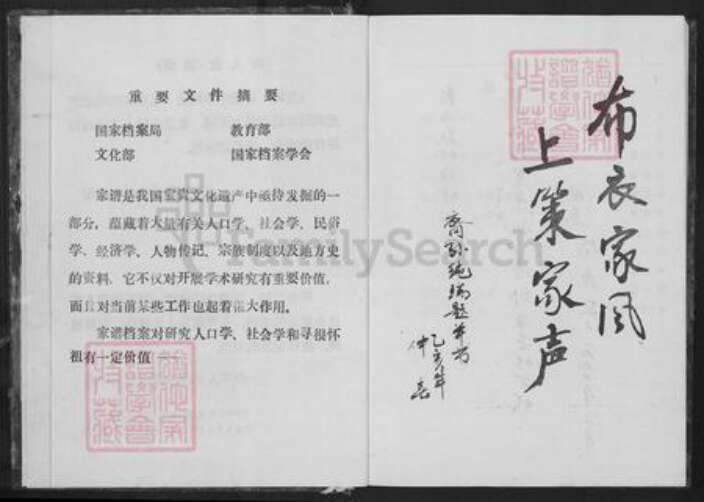 重要文件摘要
国家档案局 教育部
文化部 国家档案学会
家谱是我国宝贵文化遗产中亟待发掘的一
部分，蕴藏着大量有关人口学、社会学、民俗
学、经济学、人物传记、宗族制度以及地方史
的资料，它不仅对开展学术研究有重要价值，
而且对当前某些工作也起着很大作用。
家谱档案对研究人口学、社会学和寻根怀
祖有一定价值
布衣家风
上策家声
FamilySearch